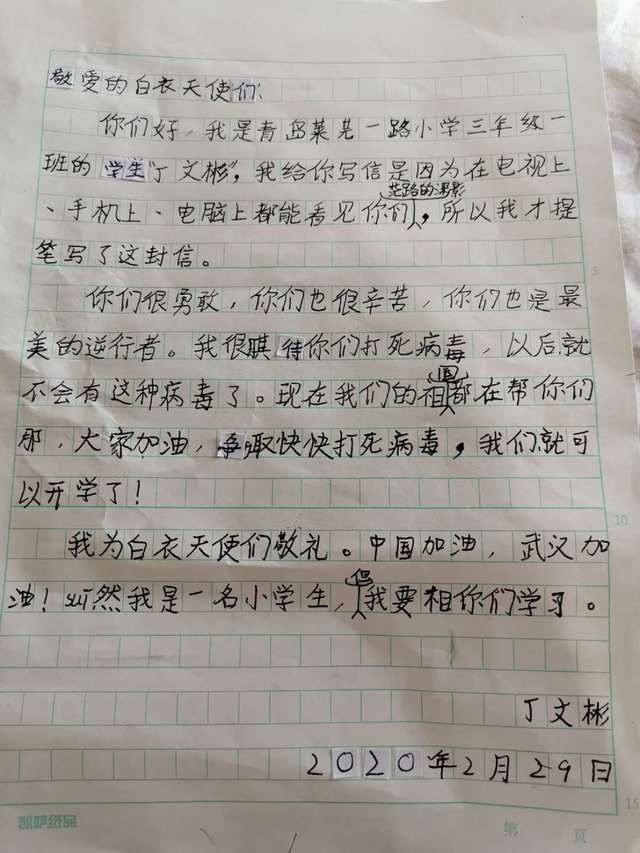 敬爱的白衣天使们:
你们好，我是青岛莱芜一路小学三年级一
班的学生"丁文彬"，我给你写信是因为在电视上
、手机上、电脑上都能看见你们，所以我才提
笔写了这封信。
你们很勇敢，你们也很辛苦，你们也是最
美的逆行者。我很期待你们打死病毒，以后就
不会有这种病毒了。现在我们的祖国都在帮你们
那，大家加油，争取快快打死病毒，我们就可
以开学了！
我为白衣天使们敬礼。中国加油，武汉加
油！sui然我是一名小学生，但我要相你们学习。
丁文彬
2020年2月29日
凯萨纸品
第 页
5
10
15